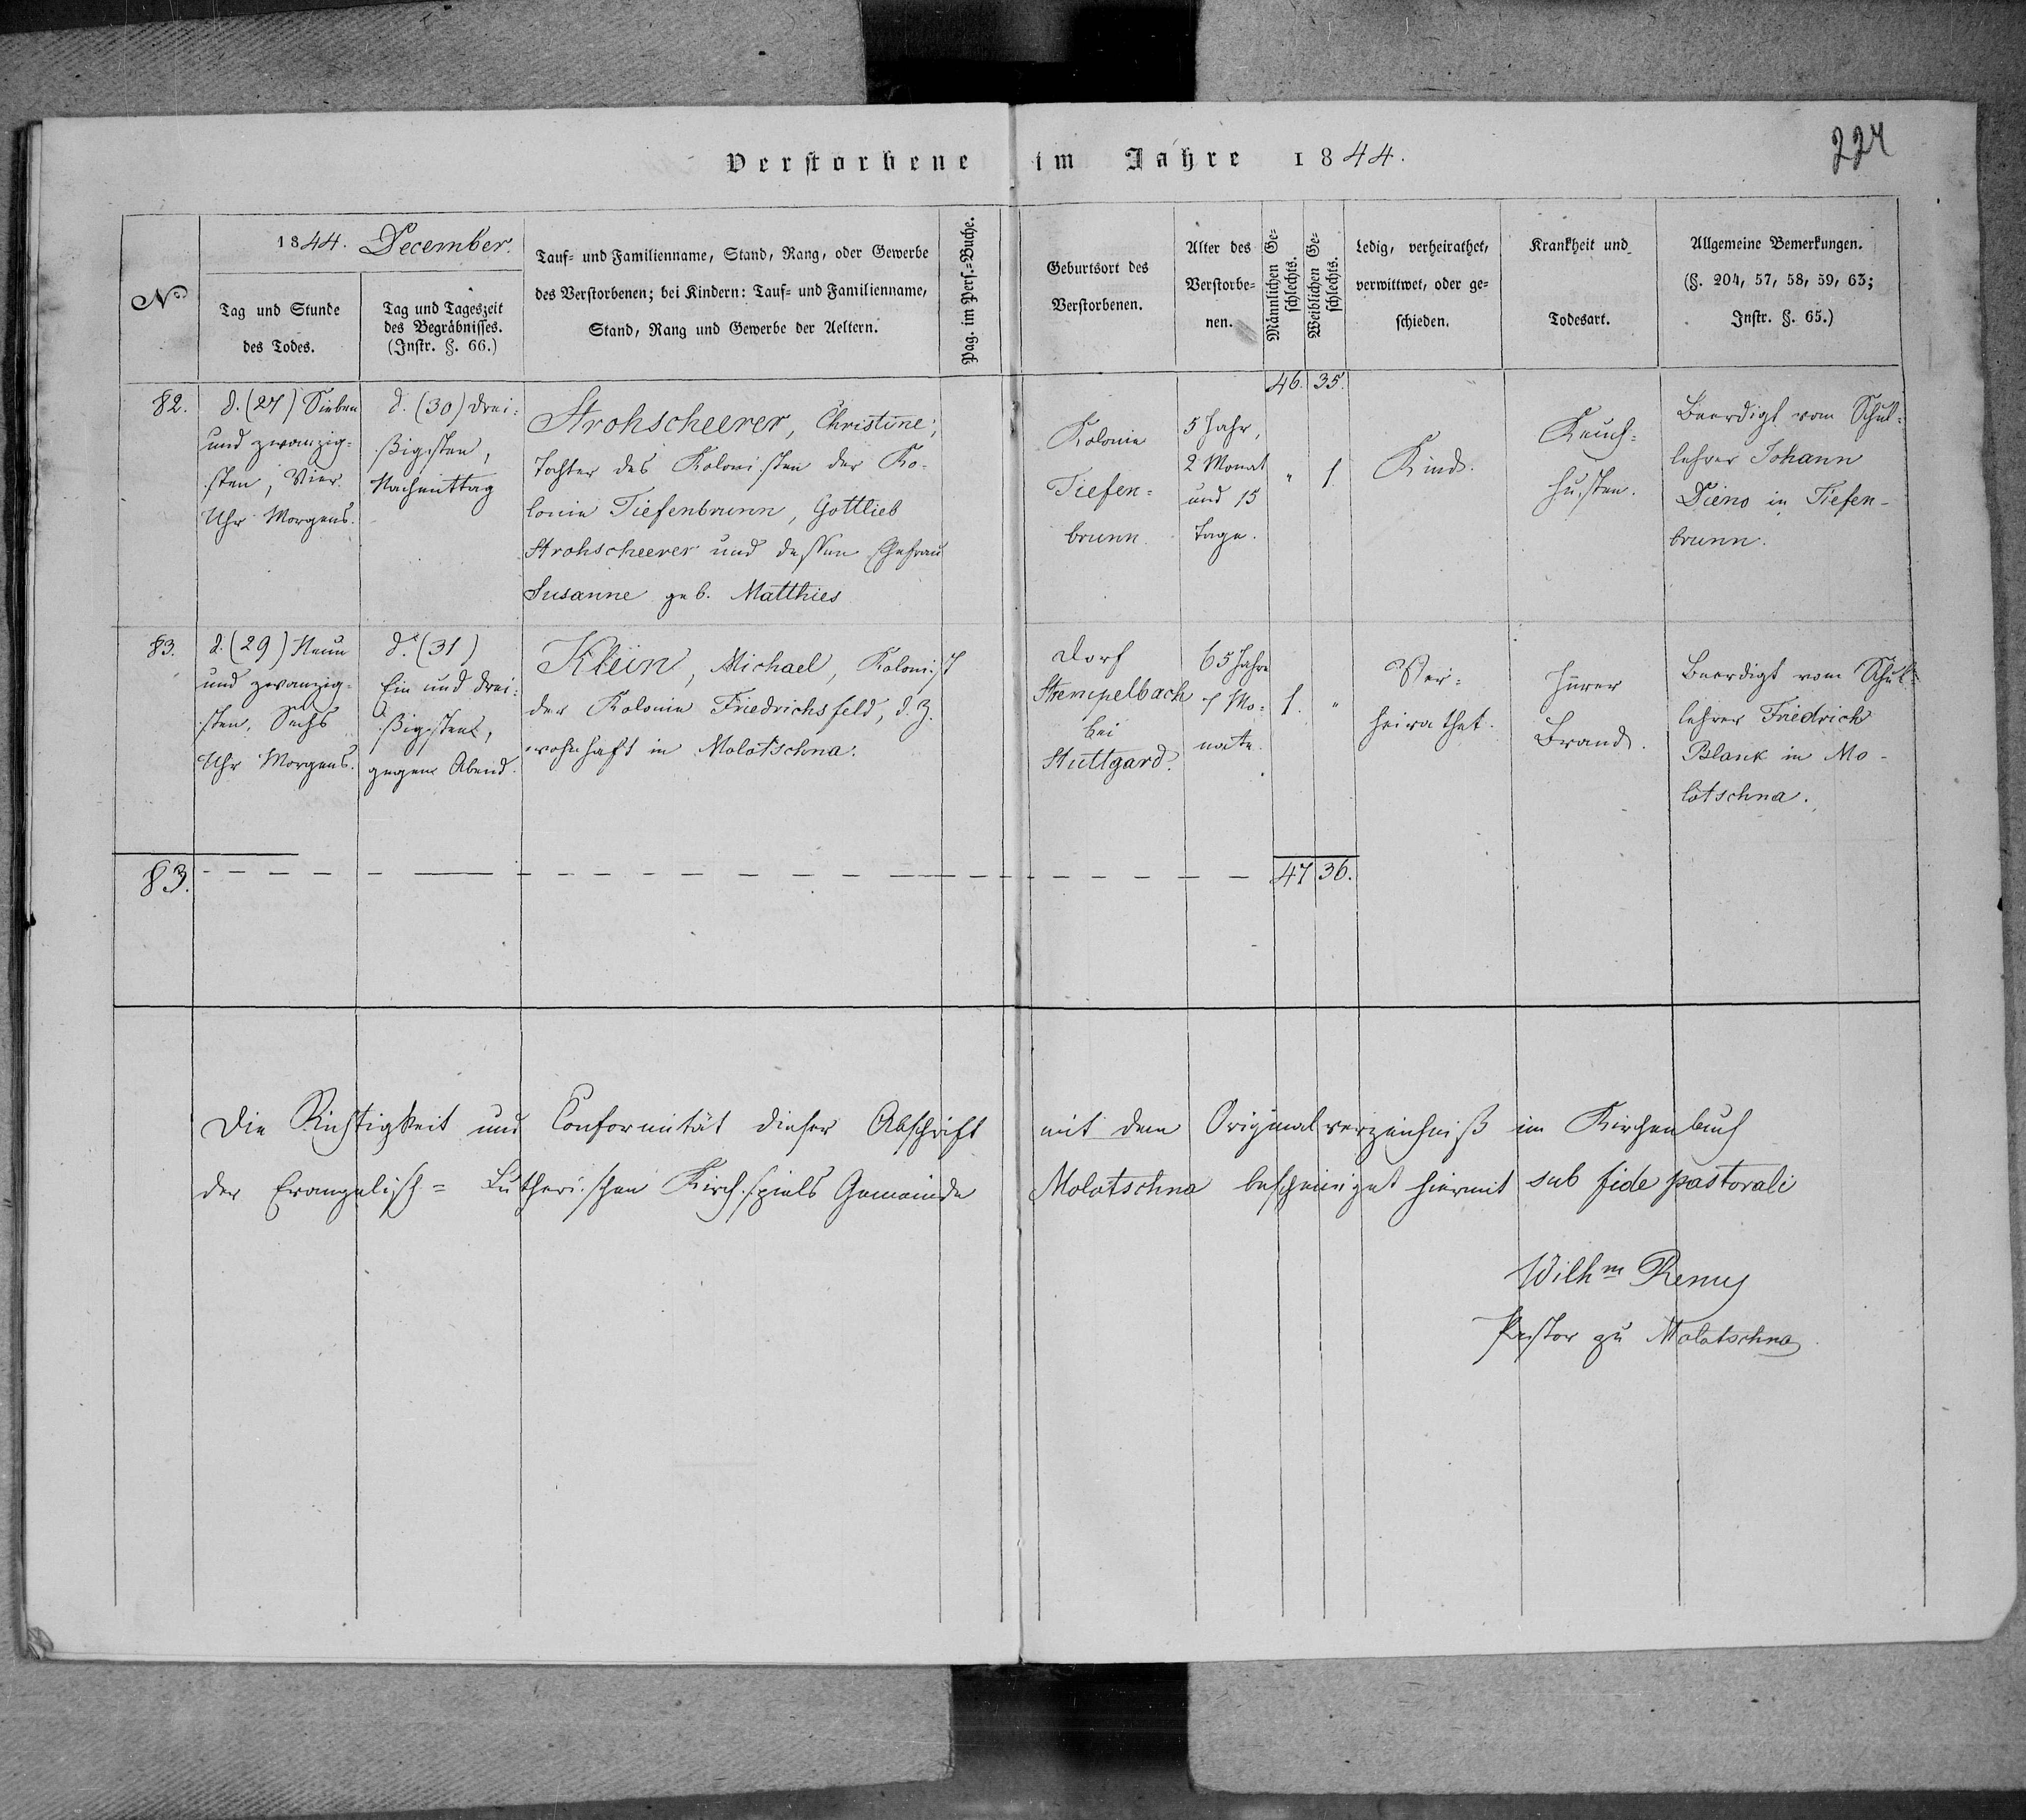 227
Verstorbene im Jahre 1844.
No
1844. December.
Tag und Stunde
des Todes.
Tag und Tageszeit
des Begräbnisses.
(Instr. §. 66.)
Tauf- und Familienname, Stand, Rang, oder Gewerbe
des Verstorbenen; bei Kindern: Tauf- und Familienname,
Stand, Rang und Gewerbe der Aeltern.
Pag. im Pers.=Buche.
Geburtsort des
Verstorbenen.
Alter des
Verstorbe-
nen.
Männlichen Ge-
schlechts.
Weiblichen Ge-
schlechts.
Ledig, verheirathet,
verwittwet, oder ge-
schieden.
Krankheit und
Todesart.
Allgemeine Bemerkungen.
(§. 204, 57, 58, 59, 63;
Instr. §. 65.)
46. 35.
82.
d. (27) Sieben
und zwanzig-
sten, Vier
Uhr Morgens.
d. (30) drei-
ßigsten,
Nachmittag
Strohscheerer, Christine,
Tochter des Kolonisten der Ko-
lonie Tiefenbrunn, Gottlieb
Strohscheerer und dessen Ehefrau
Susanne geb. Matthies
Kolonie
Tiefen-
brunn.
5 Jahr,
2 Monat
und 15
Tage.
" 1.
Kind.
Keuch-
husten.
Beerdigt vom Schul-
lehrer Johann
Dieno in Tiefen-
brunn.
83.
d. (29) Neun
und zwanzig-
sten, Sechs
Uhr Morgens.
d. (31)
Ein und drei-
ßigsten,
gegen Abend.
Klein, Michael, Kolonist
der Kolonie Friedrichsfeld, d. Z.
wohnhaft in Molotschna.
Dorf
Stempelbach
bei
Stuttgard.
65 Jahre
Mo-
nate.
1. "
Ver-
heirathet.
Brand.
Beerdigt vom Schul-
lehrer Friedrich
Blank in Mo-
lotschna.
83. 47 36.
Die Richtigkeit und Conformität dieser Abschrift mit dem Originalverzeichniß im Kirchenbuch
der Evangelisch=Lutherischen Kirchspiels Gemeinde Molotschna bescheiniget hiermit sub fide pastorali
Wilhm Remy
Pastor zu Molotschna